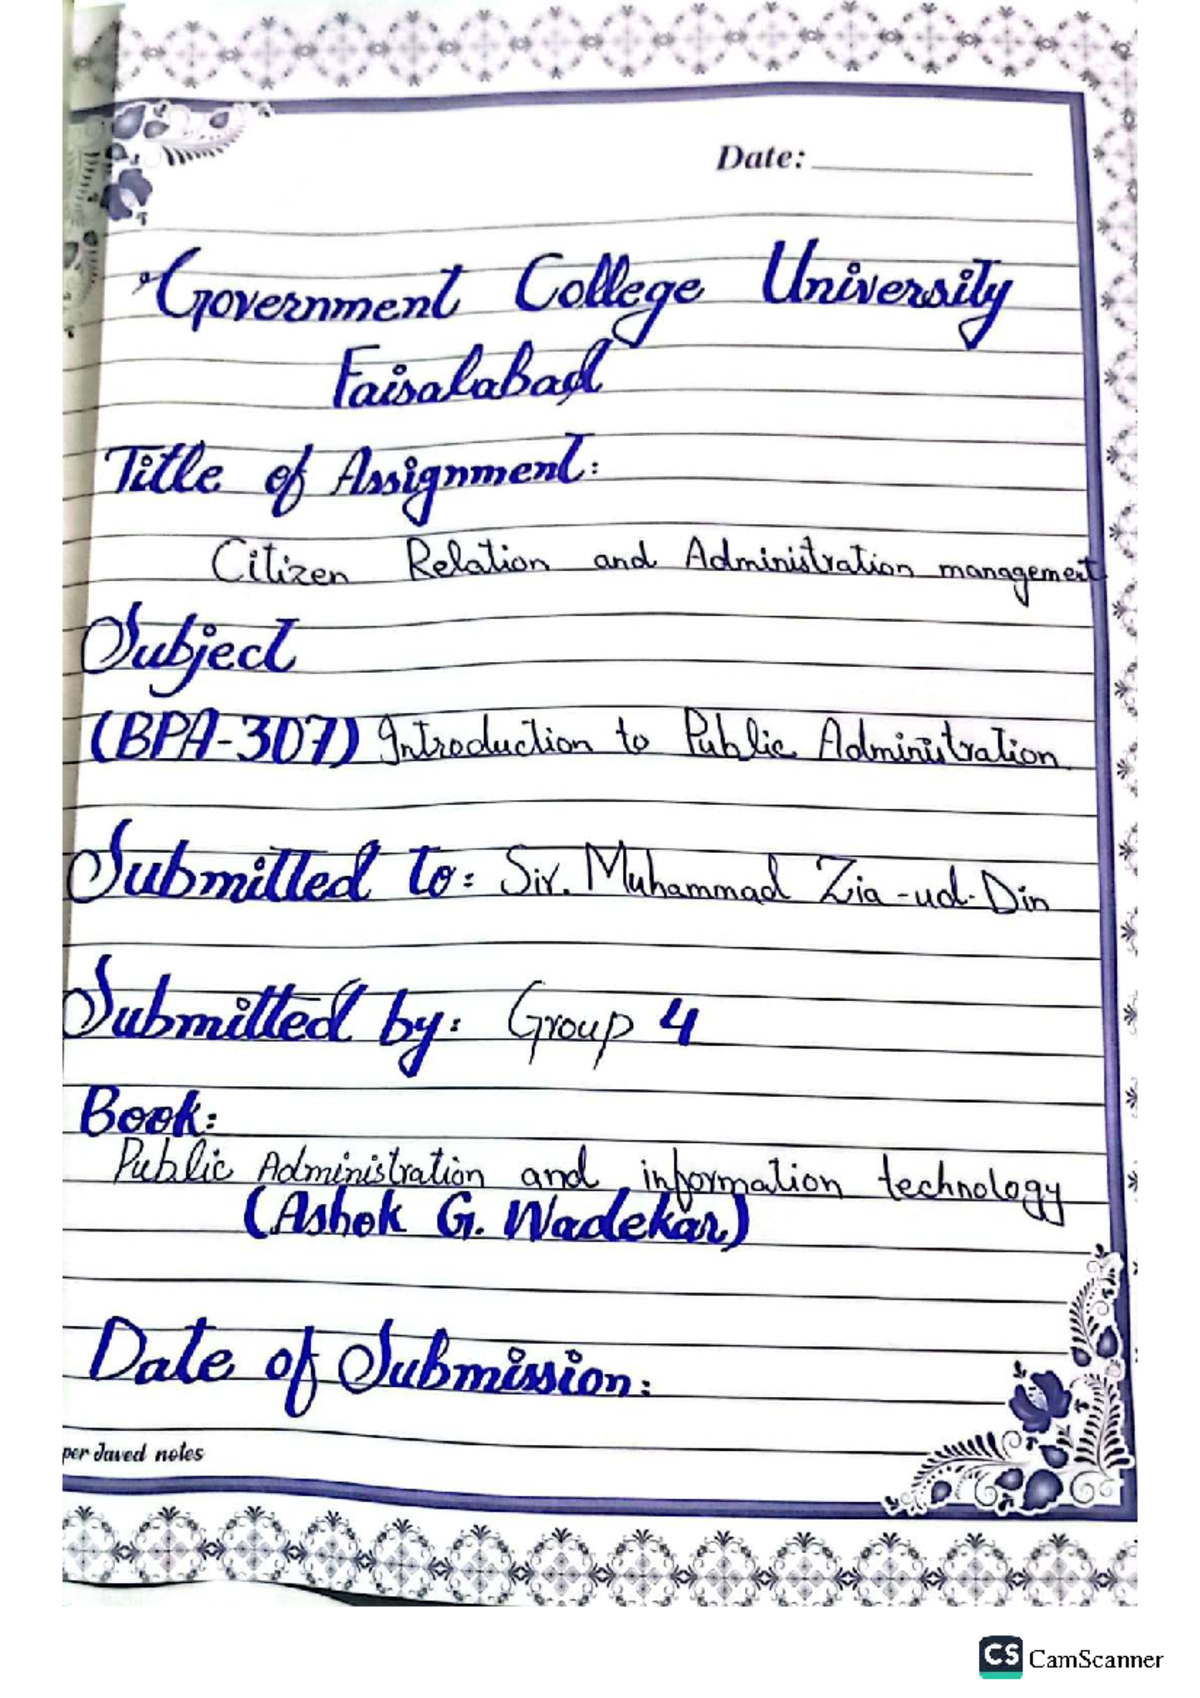 Date:
Government College University
Faisalabad
Title of Assignment:
Citizen Relation and Administration management
Subject
(BPA-307) Introduction to Public Administration
Submitted to: Sir. Muhammad Zia-ud-Din
Submitted by: Group 4
Book:
Public Administration and information technology
(Ashok G. Wadekar)
Date of Submission:
per Javed notes
CS CamScanner